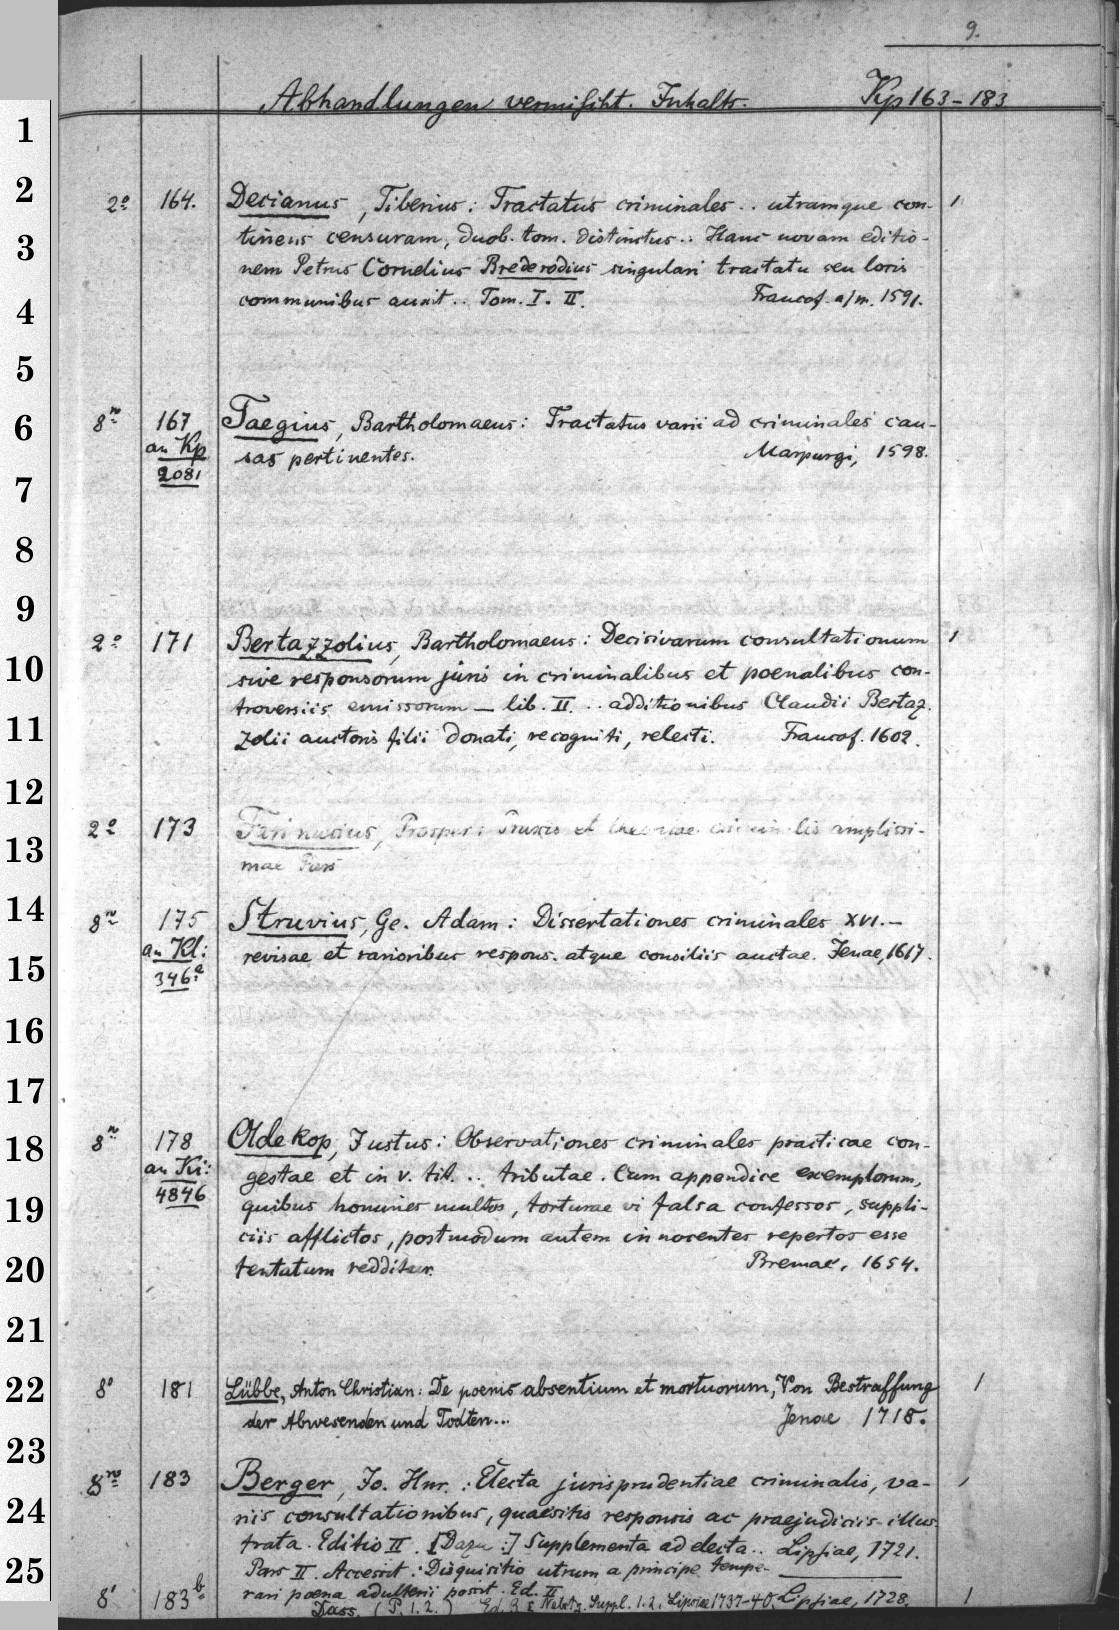 9.
Abhandlungen vermischt. Inhalts. Kp 163-183
1
2
3
4
5
6
7
8
9
10
11
12
13
14
15
16
17
18
19
20
21
22
23
24
25
2° 164. Decianus, Tiberius: Tractatus criminales .. utramque con- 1
tinens censuram, duob. tom. distinctus.. Hanc novam editio-
nem Petrus Cornelius Brederodius singulari tractatu seu locis
communibus auxit .. Tom. I. II. Francof. a/m. 1591.
8° 167 Taegius, Bartholomaeus: Tractatus varii ad criminales cau-
an Kp sas pertinentes. Marpurgi, 1598.
2081
2° 171 Bertazzolius, Bartholomaeus: Decisivarum consultationum 1
sive responsorum juris in criminalibus et poenalibus con-
troversiis emissorum — lib. II. .. additionibus Claudii Bertaz-
zolii auctoris filii donati, recogniti, relecti. Francof. 1602.
2° 173 Farinacius, Prosper: Praxis et theoricae criminalis amplissi-
mae Pars
8° 175 Struvius, Ge. Adam: Dissertationes criminales XVI.—
an Kl: revisae et rarioribus respons. atque consiliis auctae. Jenae, 1617.
346a
8° 178 Oldekop, Justus: Observationes criminales practicae con-
an Kri: gestae et in v. tit. .. tributae. Cum appendice exemplorum,
4846 quibus homines multos, torturae vi falsa confessos, suppli-
ciis afflictos, postmodum autem innocentes repertos esse
tentatum redditur. Bremae, 1654.
8° 181 Lübbe, Anton Christian: De poenis absentium et mortuorum, Von Bestraffung 1
der Abwesenden und Todten... Jenae 1718.
8° 183 Berger, Jo. Hnr.: Electa jurisprudentiae criminalis, va- 1
riis consultationibus, quaesitis responsis ac praejudiciis illus-
trata. Editio II. [Dazu:] Supplementa ad electa .. Lipsiae, 1721.
Pars II. Accessit: Disquisitio utrum a principe tempe-
8° 183b. rari poena adulterii possit. Ed. II Lipsiae, 1728. 1
Dass. (P. 1. 2.) Suppl. 1. 2. Lipsiae 1737-40.